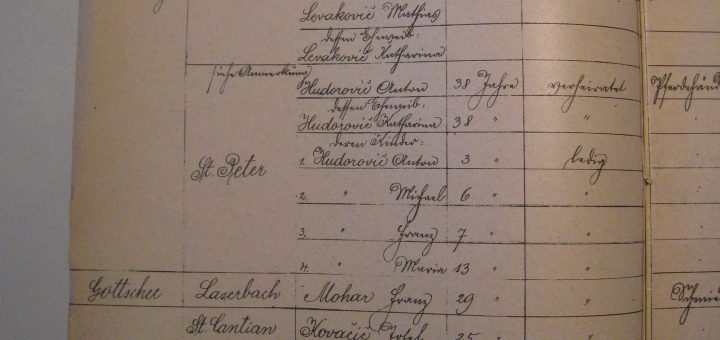 Levaković Mathias
dessen Eheweib:
Levaković Katharina
(siehe Anmerkung) Hudorović Anton 38 Jahre verheiratet Pferdehänd
dessen Eheweib:
Hudorović Katharina 38 " "
deren Kinder:
St. Peter 1. Hudorović Anton 3 " ledig
2. " Michael 6 " "
3. " Franz 7 " "
4. " Maria 13 " "
Gottschee Laserbach Mohar Franz 29 " " Schmie
St. Cantian Kovačič Josef 25 " "